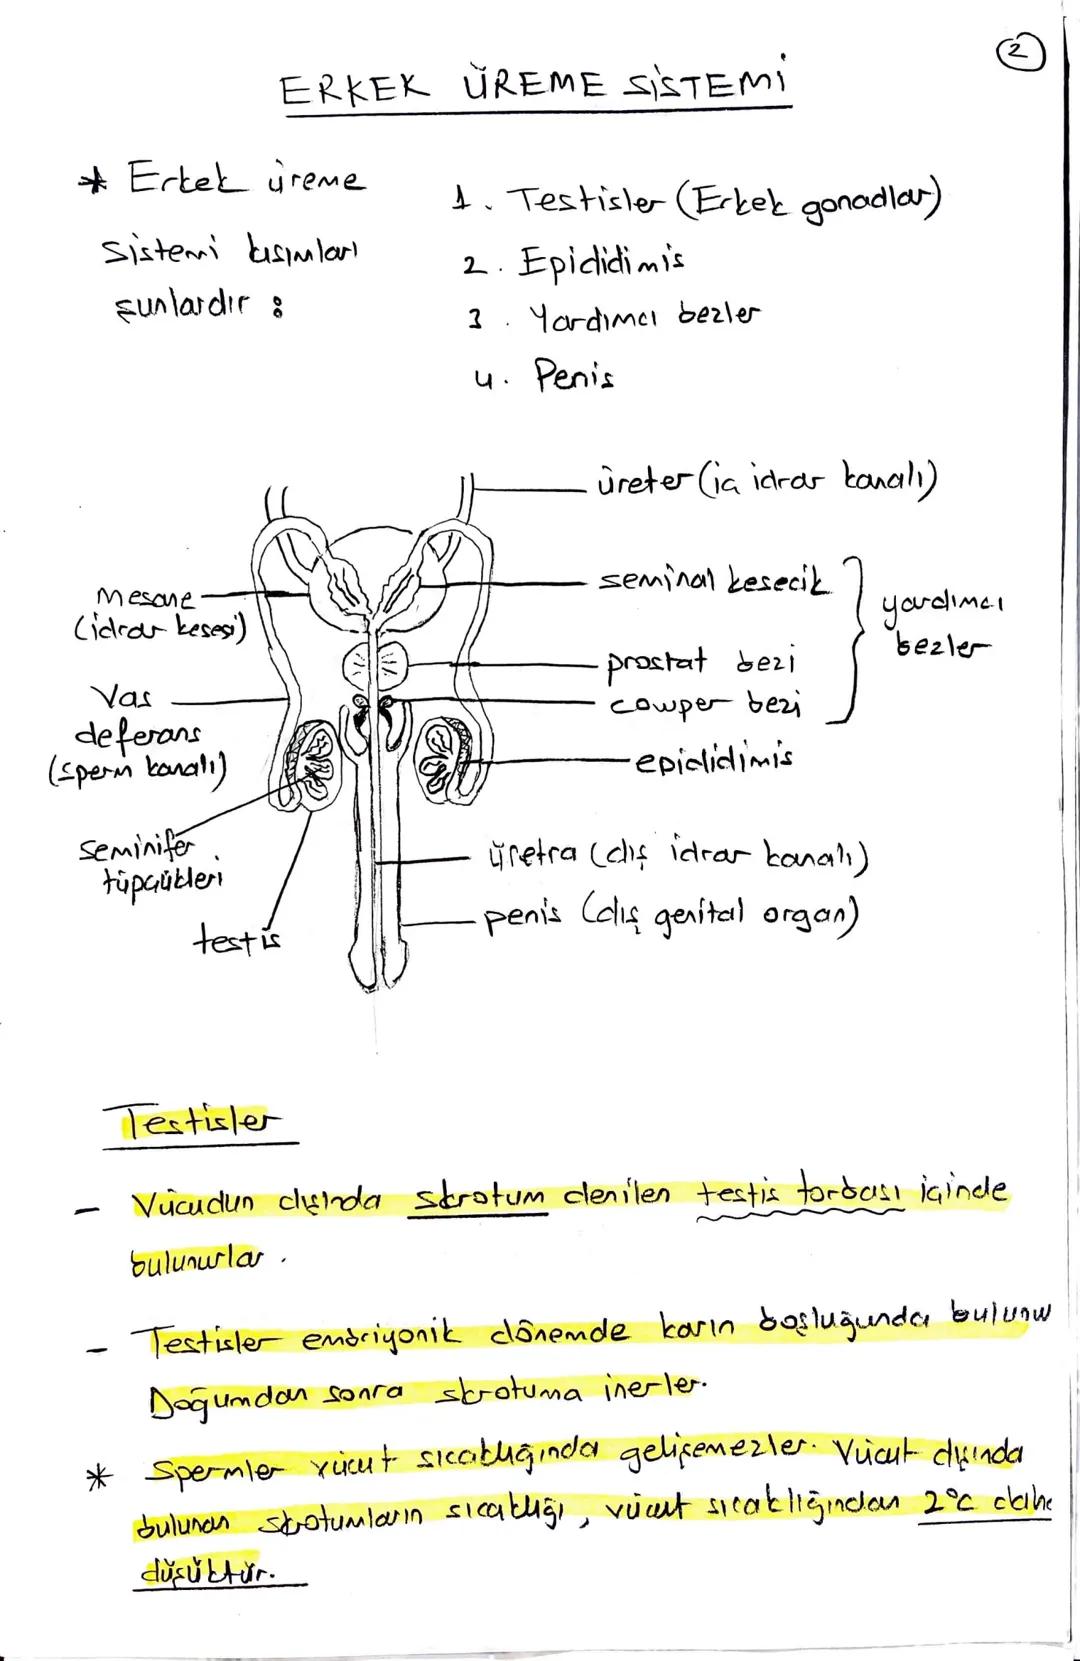 2
ERKEK ÜREME SİSTEMİ
* Erkek üreme
sistemi kısımları
şunlardır :
1. Testisler (Erkek gonadlar)
2. Epididimis
3. Yardımcı bezler
4. Penis
üreter (iç idrar kanalı)
seminal kesecik
yardımcı
bezler
mesane
(idrar kesesi)
prostat bezi
cowper bezi
Vas
deferans
(sperm kanalı)
epididimis
seminifer
tüpçükleri
üretra (dış idrar kanalı)
penis (dış genital organ)
testis
Testisler
- Vücudun dışında skrotum denilen testis torbası içinde
bulunurlar.
- Testisler embriyonik dönemde karın boşluğunda bulunur
Doğumdan sonra skrotuma inerler.
* Spermler vücut sıcaklığında gelişemezler. Vücut dışında
bulunan skrotumların sıcaklığı, vücut sıcaklığından 2°C daha
düşüktür.